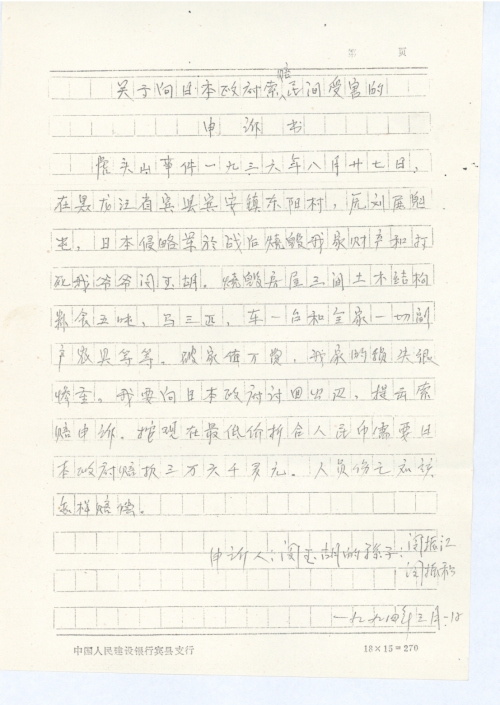 第 页
关于向日本政府索赔民间受害的
申诉书
山事件一九三六年八月廿七日，
在黑龙江省宾县宾安镇东阳村，刘屋
屯，日本侵略军於战后烧毁我家财产和打
死我爷爷闵玉胡。烧毁房屋三间土木结构
粮食五吨，马三匹，车一台和全家一切副
产农具等等。破家值万贯，我家的损失很
惨重。我要向日本政府讨回公道，提出索
赔申诉。按现在最低价折合人民币需要日
本政府赔款三万六千多元。人员伤亡应该
怎样赔偿。
申诉人：闵玉胡的孙子：闵振江
闵振和
一九九四年三月
中国人民建设银行宾县支行 18×15=270